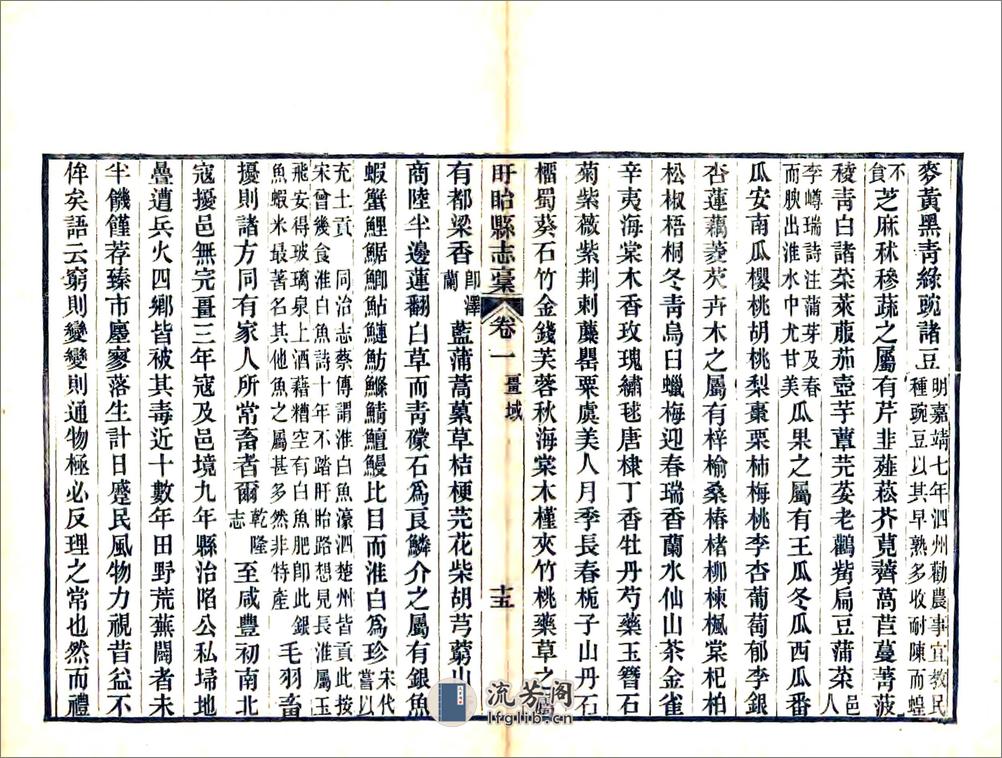 麥黃黑青綠豌諸豆明嘉靖七年泗州勸農事宜教民種豌豆以其早熟多收耐陳而蝗
不食芝麻秫穇蔬之屬有芹韭薤菘芥莧薺萵苣蔓菁菠
稜青白諸菜萊菔茄壺芋蕈芫荽老鸛觜扁豆蒲菜邑人
李嶟瑞詩注蒲芽及春而腴出淮水中尤甘美瓜果之屬有王瓜冬瓜西瓜番
瓜安南瓜櫻桃胡桃梨棗栗柿梅桃李杏葡萄郁李銀
杏蓮藕菱芡卉木之屬有梓榆桑椿楮柳楝楓棠杞柏
松椒梧桐冬青烏臼蠟梅迎春瑞香蘭水仙山茶金雀
辛夷海棠木香玫瑰繡毬唐棣丁香牡丹芍藥玉簪石
菊紫薇紫荆刺蘪罌粟虞美人月季長春梔子山丹石
櫺蜀葵石竹金錢芙蓉秋海棠木槿夾竹桃藥草之屬
盱眙縣志稾 卷一 畺域 十五
有都梁香卽澤蘭藍蒲蒿藁草桔梗芫花柴胡芎藭山
商陸半邊蓮翻白草而青礞石爲良鱗介之屬有銀魚
蝦蟹鯉鯤鯽鮎鰱魴鰷鯖鱣鰻比目而淮白爲珍宋代嘗以
充土貢 同治志蔡傳謂淮白魚濠泗楚州皆貢此按宋曾幾食淮白魚詩十年不踏盱眙路想見長淮屬玉
飛安得玻璃泉上酒藉糟空有白魚肥卽此銀魚蝦米最著名其他魚之屬甚多然非特產毛羽畜
擾則諸方同有家人所常畜者爾乾隆志至咸豐初南北
寇擾邑無完畺三年寇及邑境九年縣治陷公私埽地
壘遭兵火四鄉皆被其毒近十數年田野荒蕪闢者未
半饑饉荐臻市廛寥落生計日蹙民風物力視昔益不
侔矣語云窮則變變則通物極必反理之常也然而禮
流芳閣
lfglib.cn